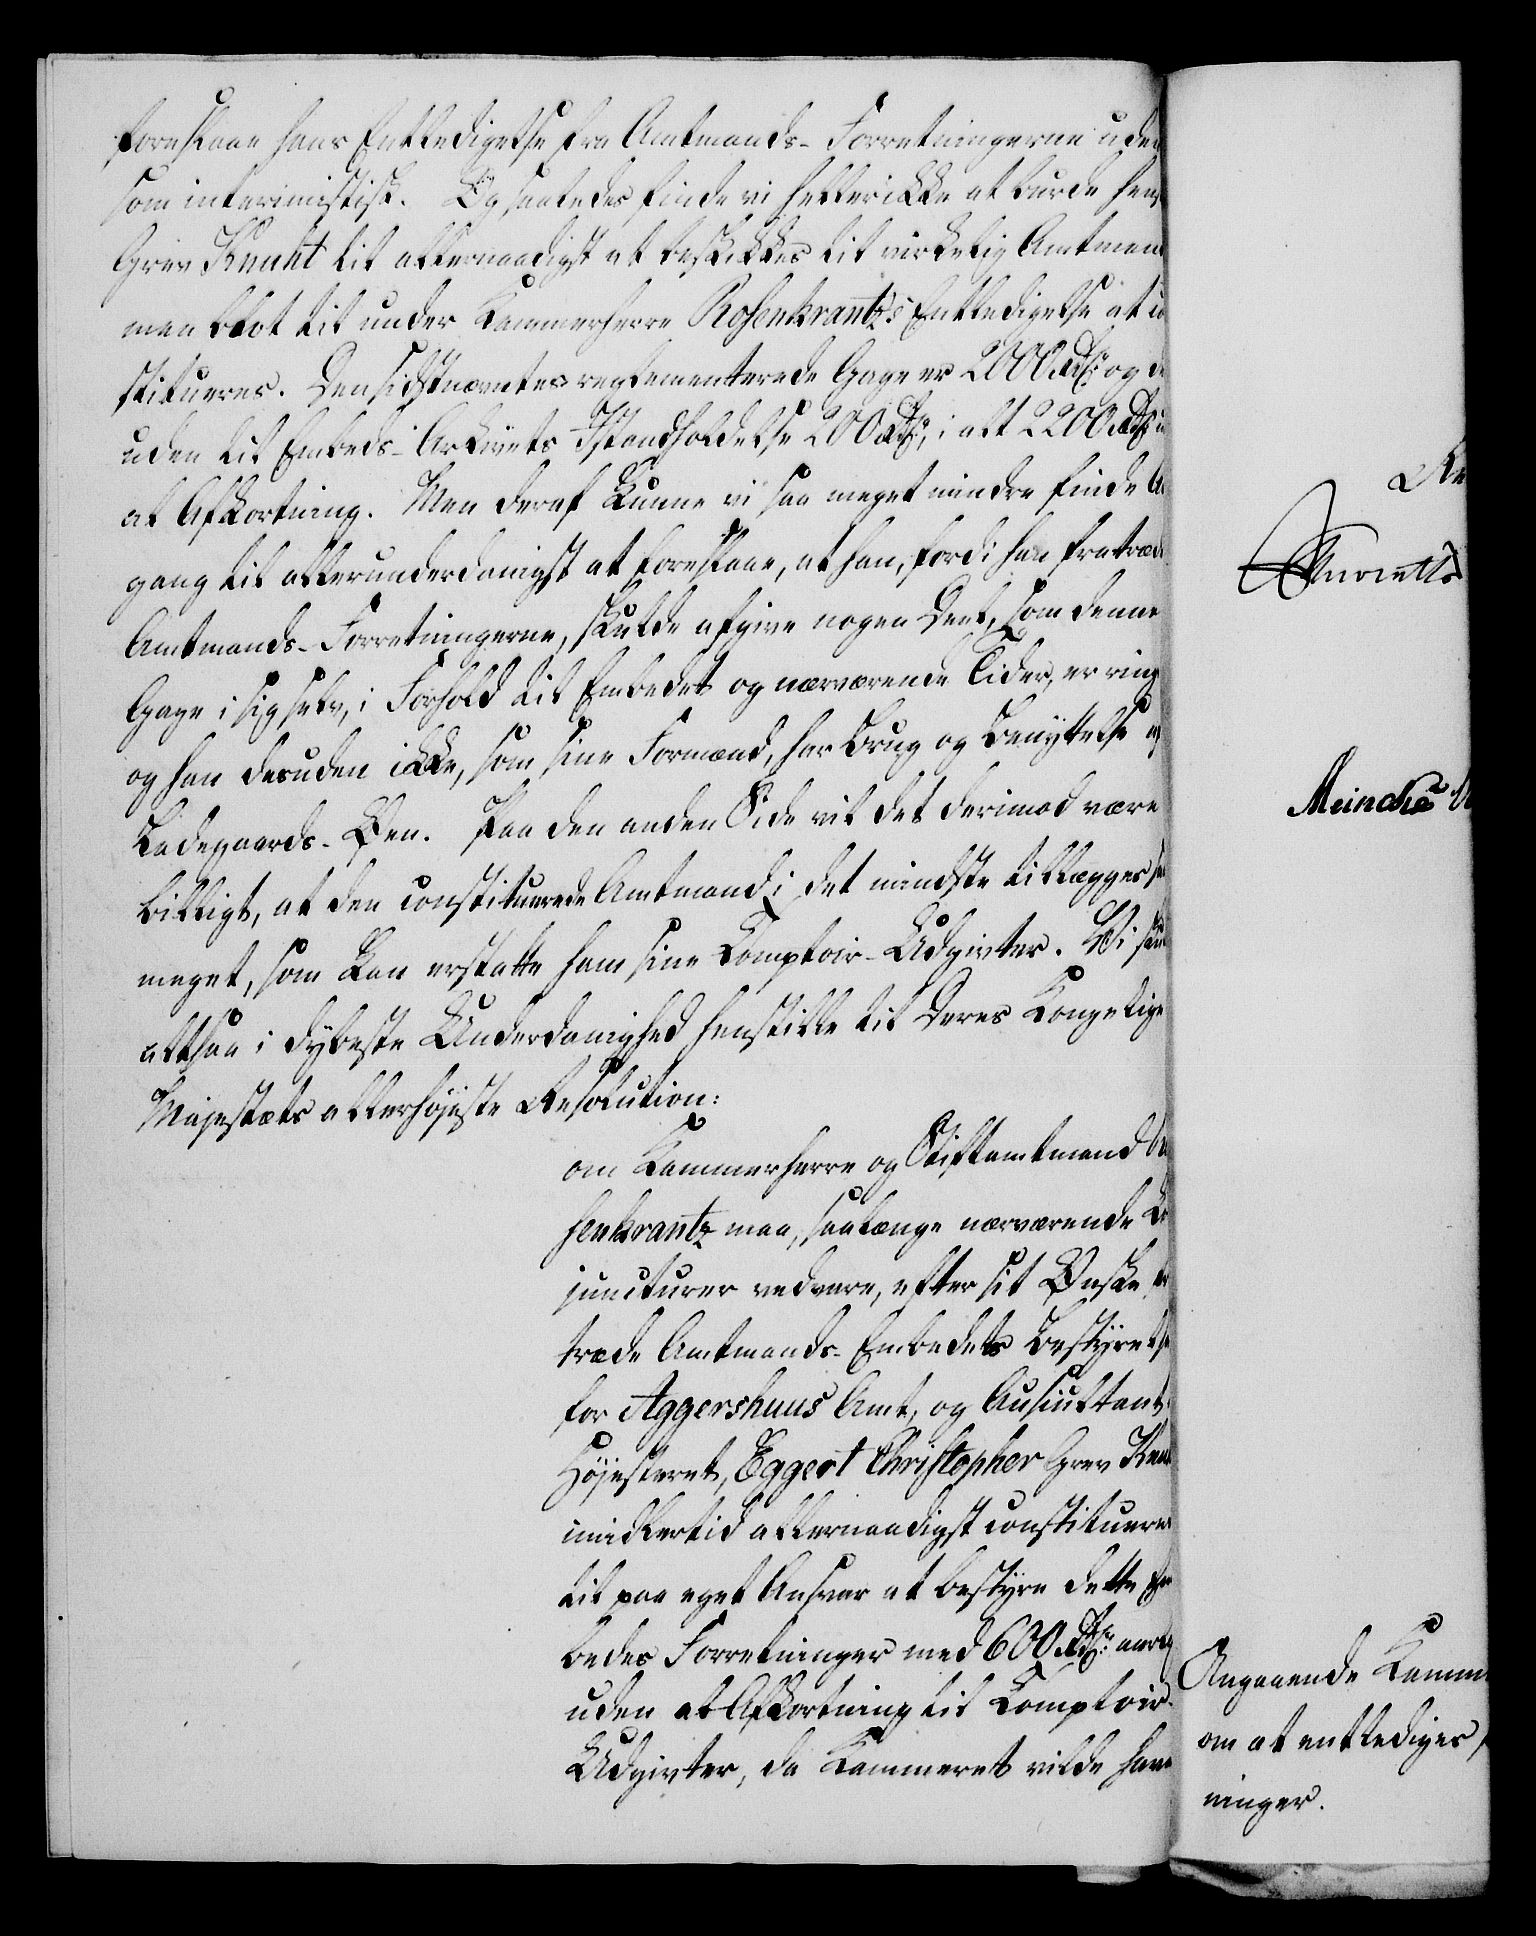 foreslaae hans Entledigelse fra Amtmands-Forretningerne uden
som interimistisk. Og saaledes finde vi hellerikke at burde
Grev Knuht til allernaadigst at beskikkes til virkelig Amtmand
men blot til under Kammerherre Rosenkrantz's Entledigelse at
stitueres. Den sidstnævntes reglementerede Gage er 2000 Rdlr og
uden til Embeds-Arkivets Istandholdelse 200 Rdlr, i alt 2200 Rdlr
al Afkortning. Men deraf kunne vi saa meget mindre finde
gang til allerunderdanigst at foreslaae, at han, fordi han fratræder
Amtmands-Forretningerne, skulde afgive nogen Deel, som denne
Gage i sig selv, i Forhold til Embedet og nærværende Tider, er ring
og han desuden ikke, som sine Formænd, har Brug og Benyttelse af
Ladegaards-Øen. Paa den anden Side vil det derimod være
billigt, at den constituerede Amtmand i det mindste tillægges saa
meget, som kan erstatte ham sine Comptoir-Udgivter. Vi
altsaa i dybeste Underdanighed henstille til Deres Kongelige
Majestæts allerhøjeste Resolution:
om Kammerherre og Stiftamtmand
senkrantz maa, saalænge nærværende
juncturer vedvare, efter sit Ønske
træde Amtmands-Embedets Bestyrelse
for Aggershuus Amt, og Auscultant
Højesteret, Eggert Christopher Grev
imidlertid allernaadigst constitueres
til paa eget Ansvar at bestyre dette Em
bedes Forretninger med 600 Rdlr aarlig
uden al Afkortning til Comptoir-
Udgivter, da Kammeret vilde have
Meinche
Angaaende Kamm
om at entlediges
ninger.